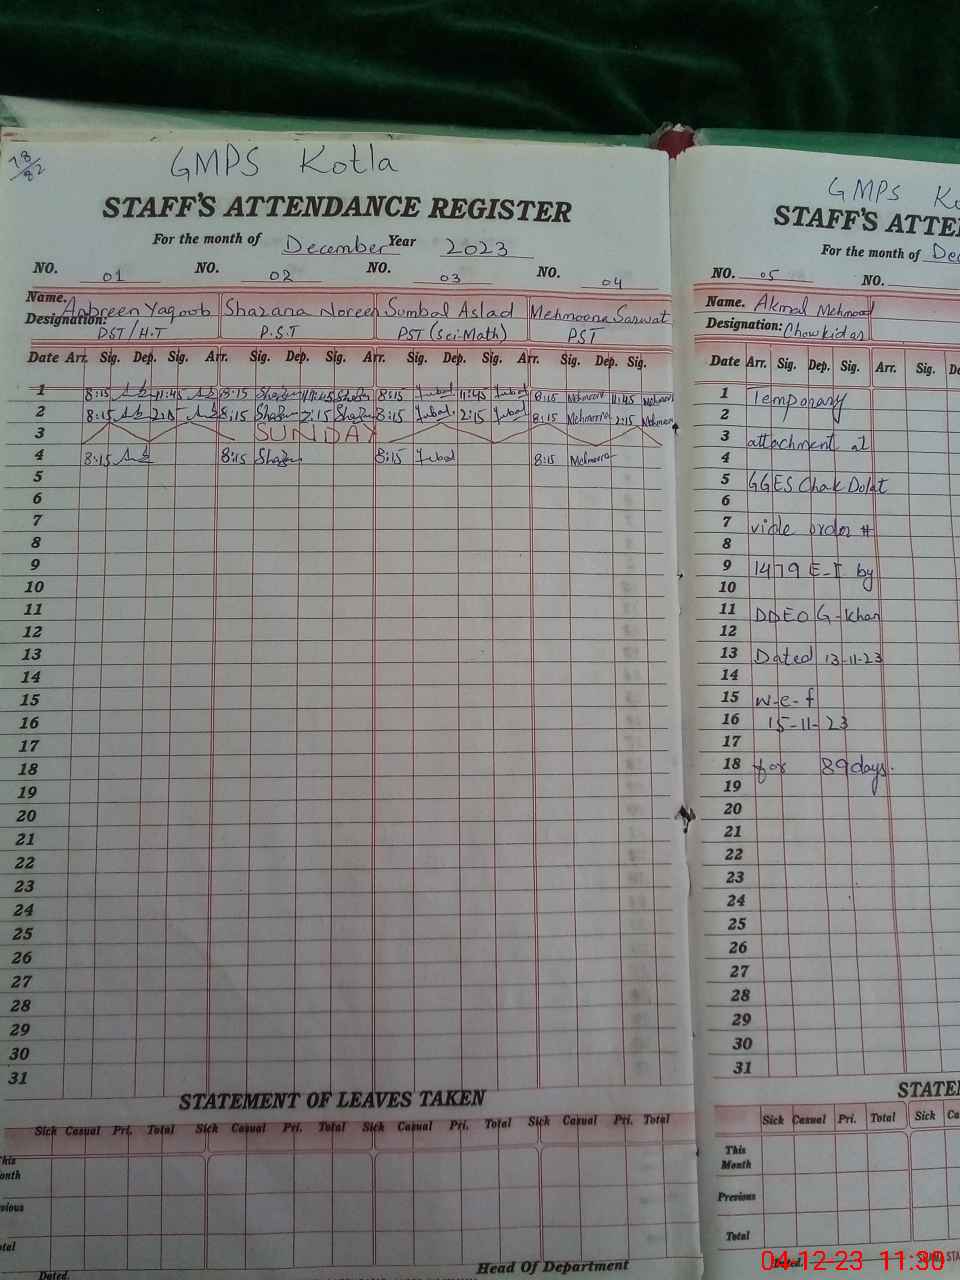 78/82
GMPS Kotla
STAFF'S ATTENDANCE REGISTER
For the month of December Year 2023
NO. 01 NO. 02 NO. 03 NO. 04
Name. Anbreen Yaqoob Shazana Noreen Sumbal Aslad Mehmoona Sarwat
Designation: PST/H.T P.S.T PST (Sci-Math) PST
Date Arr. Sig. Dep. Sig. Arr. Sig. Dep. Sig. Arr. Sig. Dep. Sig. Arr. Sig. Dep. Sig.
1 8:15 11:45 8:15 11:45 8:15 11:45 8:15 Mehmoona 11:45 Mehmoona
2 8:15 2:15 8:15 2:15 8:15 2:15 8:15 Mehmoona 2:15 Mehmoona
3 SUNDAY
4 8:15 8:15 8:15 8:15 Mehmoona
5
6
7
8
9
10
11
12
13
14
15
16
17
18
19
20
21
22
23
24
25
26
27
28
29
30
31
STATEMENT OF LEAVES TAKEN
Sick Casual Pri. Total Sick Casual Pri. Total Sick Casual Pri. Total Sick Casual Pri. Total
Dated.
Head Of Department
GMPS
STAFF'S
For the month of
NO. 05 NO.
Name. Akmal Mehmood
Designation: Chowkidar
Date Arr. Sig. Dep. Sig. Arr. Sig.
1 Temporary
2
3 attachment at
4
5 GGES Chak Dolat
6
7 vide order #
8
9 1479 E-I by
10
11 DDEO G-Khan
12
13 Dated 13-11-23
14
15 w-e-f
16 15-11-23
17
18 for 89 days.
19
20
21
22
23
24
25
26
27
28
29
30
31
Sick Casual Pri. Total Sick
This Month
Previous
Total
Dated.
04-12-23 11:30